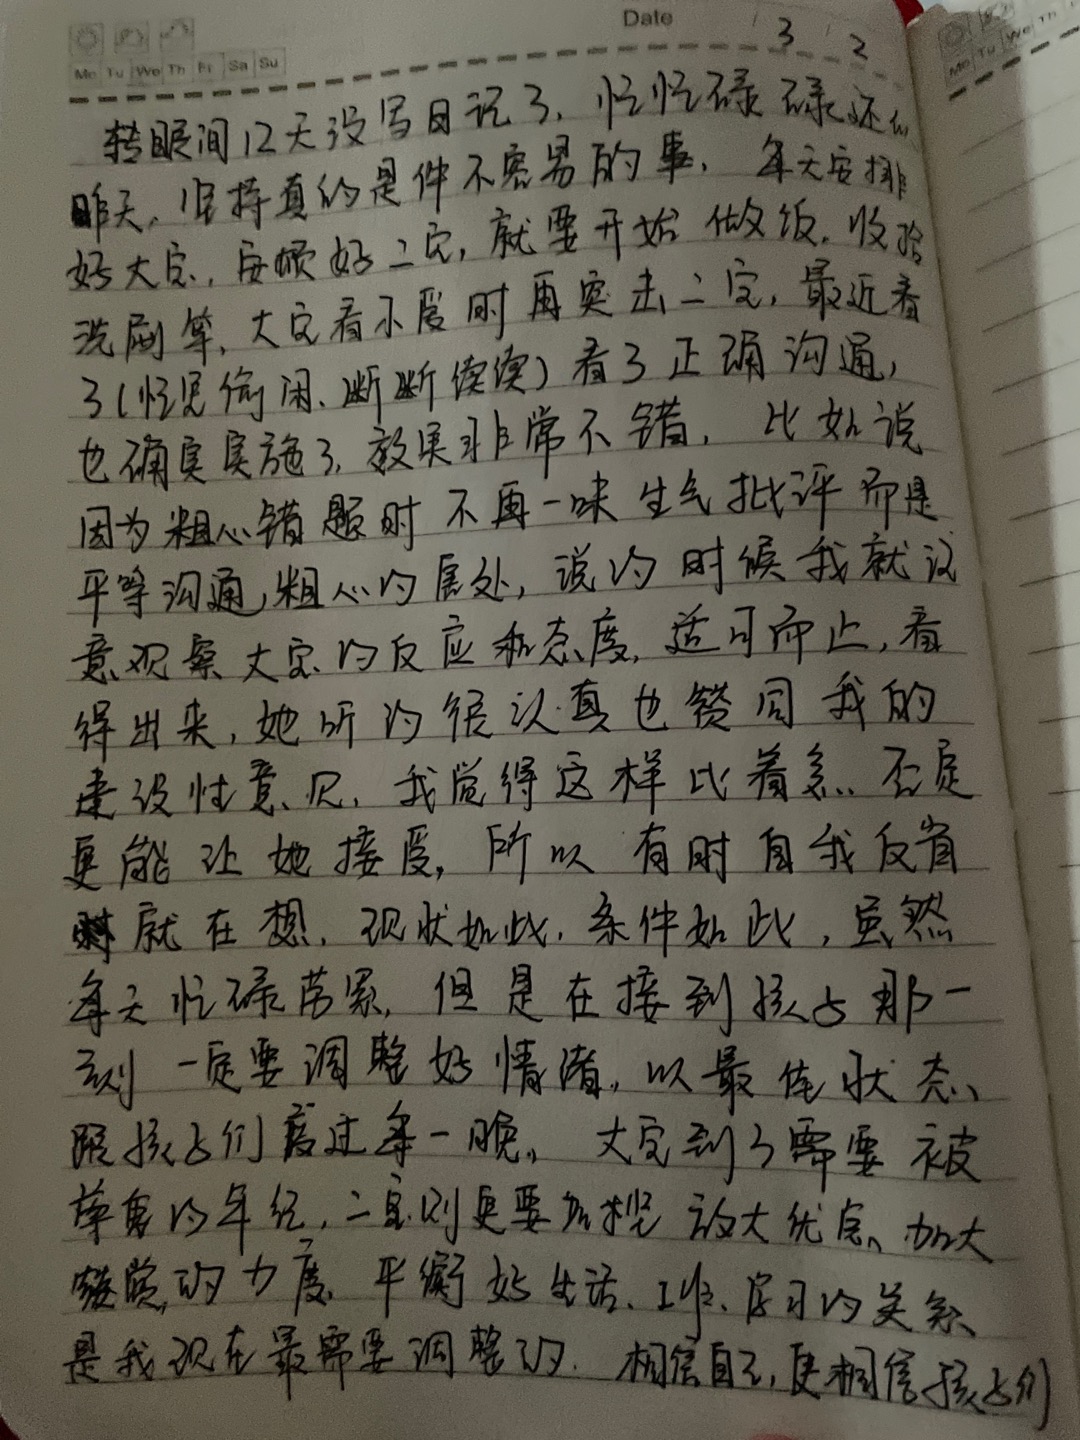 Date 3 / 2
Mo Tu We Th Fr Sa Su
Mo Tu We Th
转眼间12天没写日记了,忙忙碌碌还似
昨天,坚持真的是件不容易的事,每天安排
好大宝,安顿好二宝,就要开始做饭,收拾
洗刷等,大宝看不爱时再突击二宝,最近看
了(忙里偷闲、断断续续)看了正确沟通,
也确实实施了,效果非常不错,比如说
因为粗心错题时不再一味生气批评而是
平等沟通,粗心的害处,说的时候我就注
意观察大宝的反应和态度,适可而止,看
得出来,她听的很认真也赞同我的
建设性意见,我觉得这样比着急、否定
更能让她接受,所以有时自我反省
时就在想,现状如此,条件如此,虽然
每天忙碌劳累,但是在接到孩子那一
刻一定要调整好情绪,以最佳状态、
陪孩子们度过每一晚,大宝到了需要被
尊重的年纪,二宝则更要加 放大优点、加大
赞赏的力度,平衡好生活、工作、学习的关系
是我现在最需要调整的.相信自己,更相信孩子们